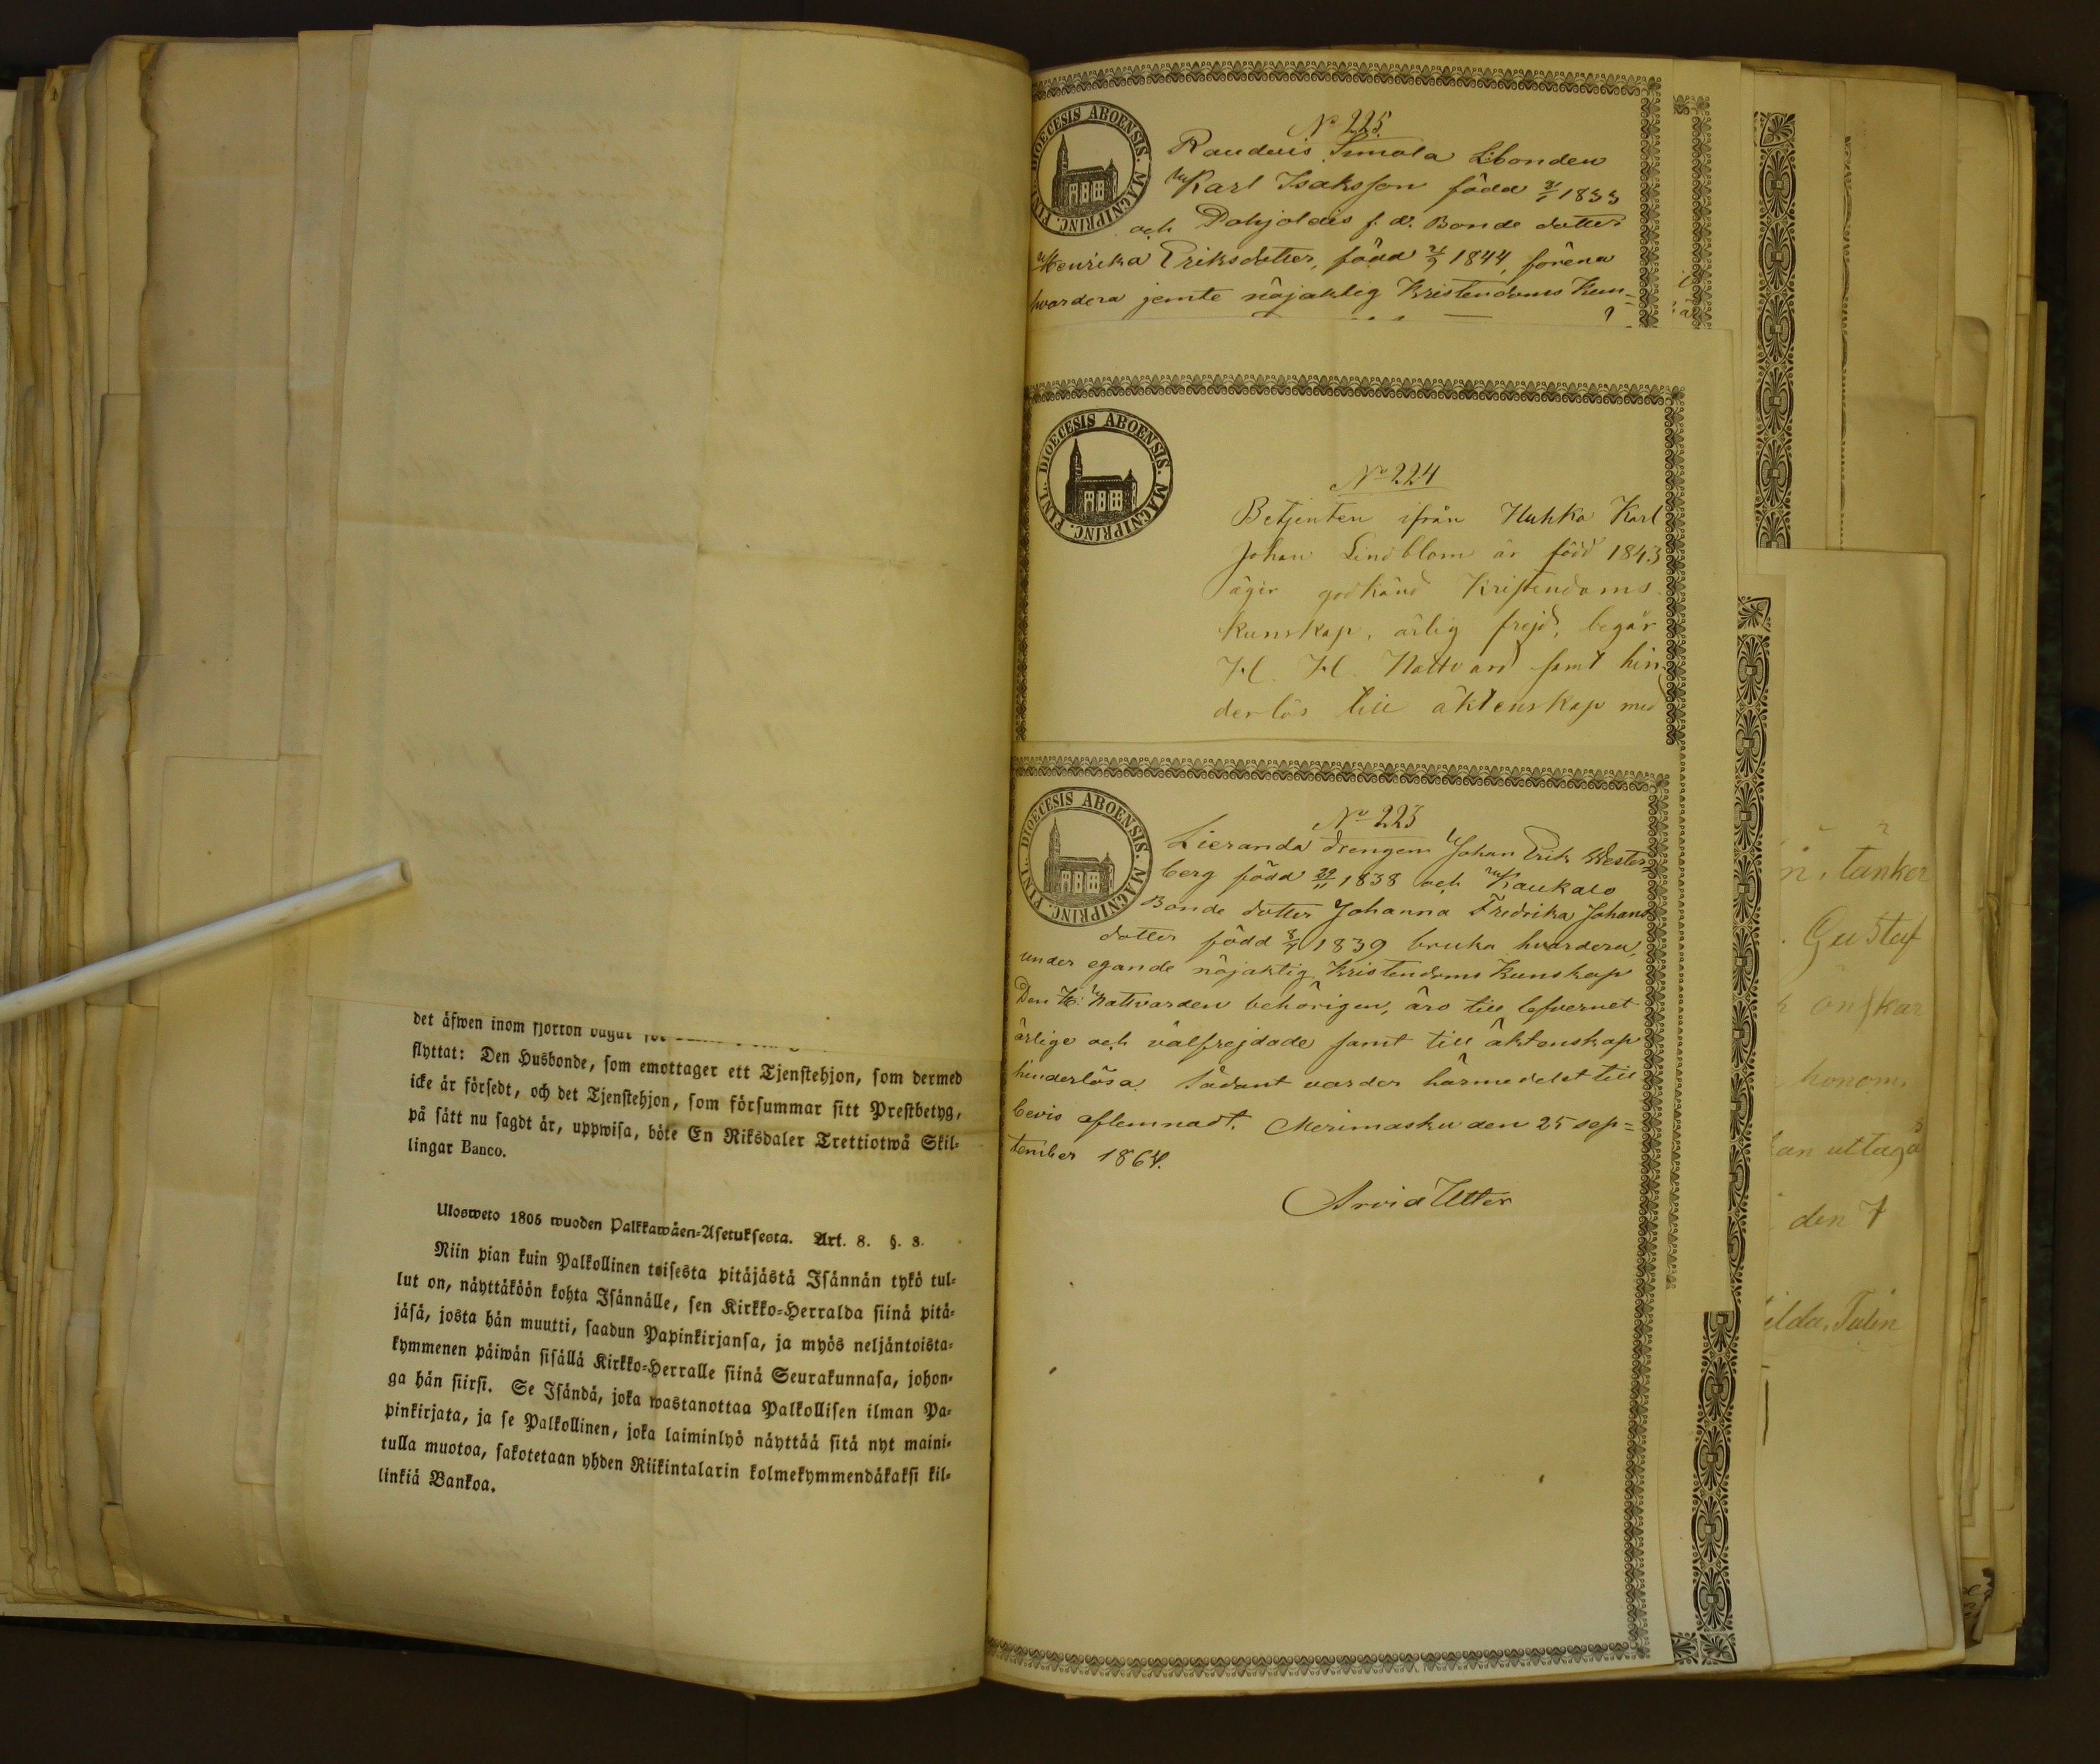 det äfwen inom fjorton dagar
flyttat: Den Husbonde, som emottager ett Tjenstehjon, som dermed
icke är försedt, och det Tjenstehjon, som försummar sitt Prestbetyg,
på sätt nu sagdt är, uppwisa, böte En Riksdaler Trettiotwå Skil-
lingar Banco.
Ulosweto 1805 wuoden Palkkawäen-Asetuksesta. Art. 8. §. 8.
Niin pian kuin Palkollinen toisesta pitäjästä Isännän tykö tul-
lut on, näyttäköön kohta Isännälle, sen Kirkko-Herralda siinä pitä-
jäsä, josta hän muutti, saadun Papinkirjansa, ja myös neljäntoista-
kymmenen päiwän sisällä Kirkko-Herralle siinä Seurakunnasa, johon-
ga hän siirsi. Se Isändä, joka wastanottaa Palkollisen ilman Pa-
pinkirjata, ja se Palkollinen, joka laiminlyö näyttää sitä nyt maini-
tulla muotoa, sakotetaan yhden Riikintalarin kolmekymmendäkaksi kil-
linkiä Bankoa.
FINL. DIOECESIS ABOENSIS. MAGNIPRINC.
No 225.
Rauduis Simola Lbonden
Karl Isaksson född 31/1 1833
och Pohjolais f. d. Bonde dotter
Henrika Eriksdotter, född 21/9 1844, förena
hvardera jemte nöjaktig Kristendoms Kun-
FINL. DIOECESIS ABOENSIS. MAGNIPRINC.
No 224
Betjenten ifrån Huhka Karl
Johan Lindblom är född 1843
äger godkänd Kristendoms
kunskap, ärlig frejd, begår
H. H. Nattvard samt hin-
derlös till äktenskap med
FINL. DIOECESIS ABOENSIS. MAGNIPRINC.
No 223
Lieranda drengen Johan Erik Wester-
berg född 29/11 1838 och Kaukalo
Bonde dotter Johanna Fredrika Johans
dotter född 1839 bruka hvardera,
under egande nöjaktig Kristendoms Kunskap
Den H. Nattvarden behörigen, äro till lefvernet
ärlige och välfrejdade samt till äktenskap
hinderlösa. Sådant varder härmedelst till
bevis aflemnadt. Merimasku den 25 sep=
tember 1864.
Arvid Utter
tänker
Gustaf
önskar
honom,
kan uttaga
den 7
ilda. Tulin